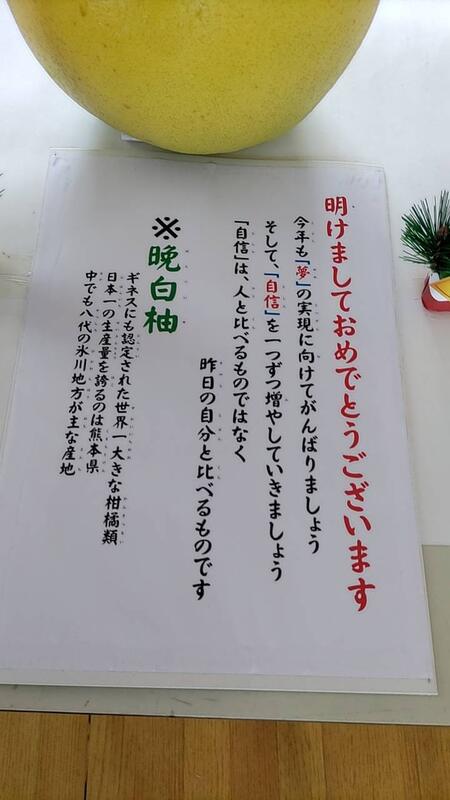 明けましておめでとうございます
今年も「夢」の実現に向けてがんばりましょう
そして、「自信」を一つずつ増やしていきましょう
「自信」は、人と比べるものではなく
昨日の自分と比べるものです
※晩白柚
ギネスにも認定された世界一大きな柑橘類
日本一の生産量を誇るのは熊本県
中でも八代の氷川地方が主な産地